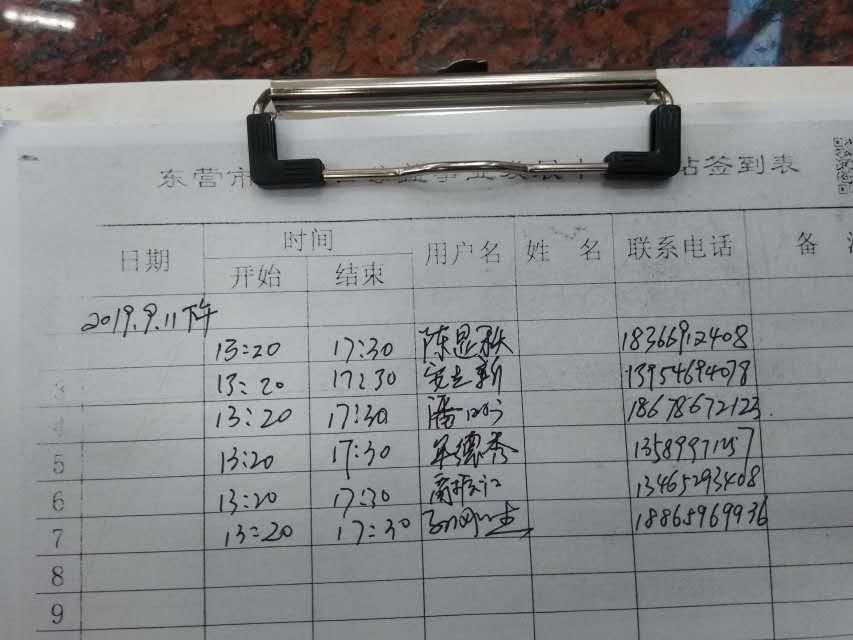 东营市 站签到表
日期 时间 用户名 姓名 联系电话 备
开始 结束
2019.9.11下午
13:20 17:30 陈显秋 18366912408
3 13:20 17:30 安志新 13954694078
4 13:20 17:30 潘 18678672123
5 13:20 17:30 单德秀 13589971257
6 13:20 17:30 13465293408
7 13:20 17:30 18865969936
8
9